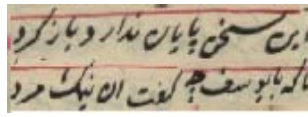 این سخن پایان ندارد باز گرد
تا که با یوسف چه گفت آن نیک مرد